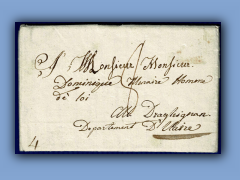 A Monsieur Monsieur
Dominique Homme
de loi
A Draguignan
Departement D
4